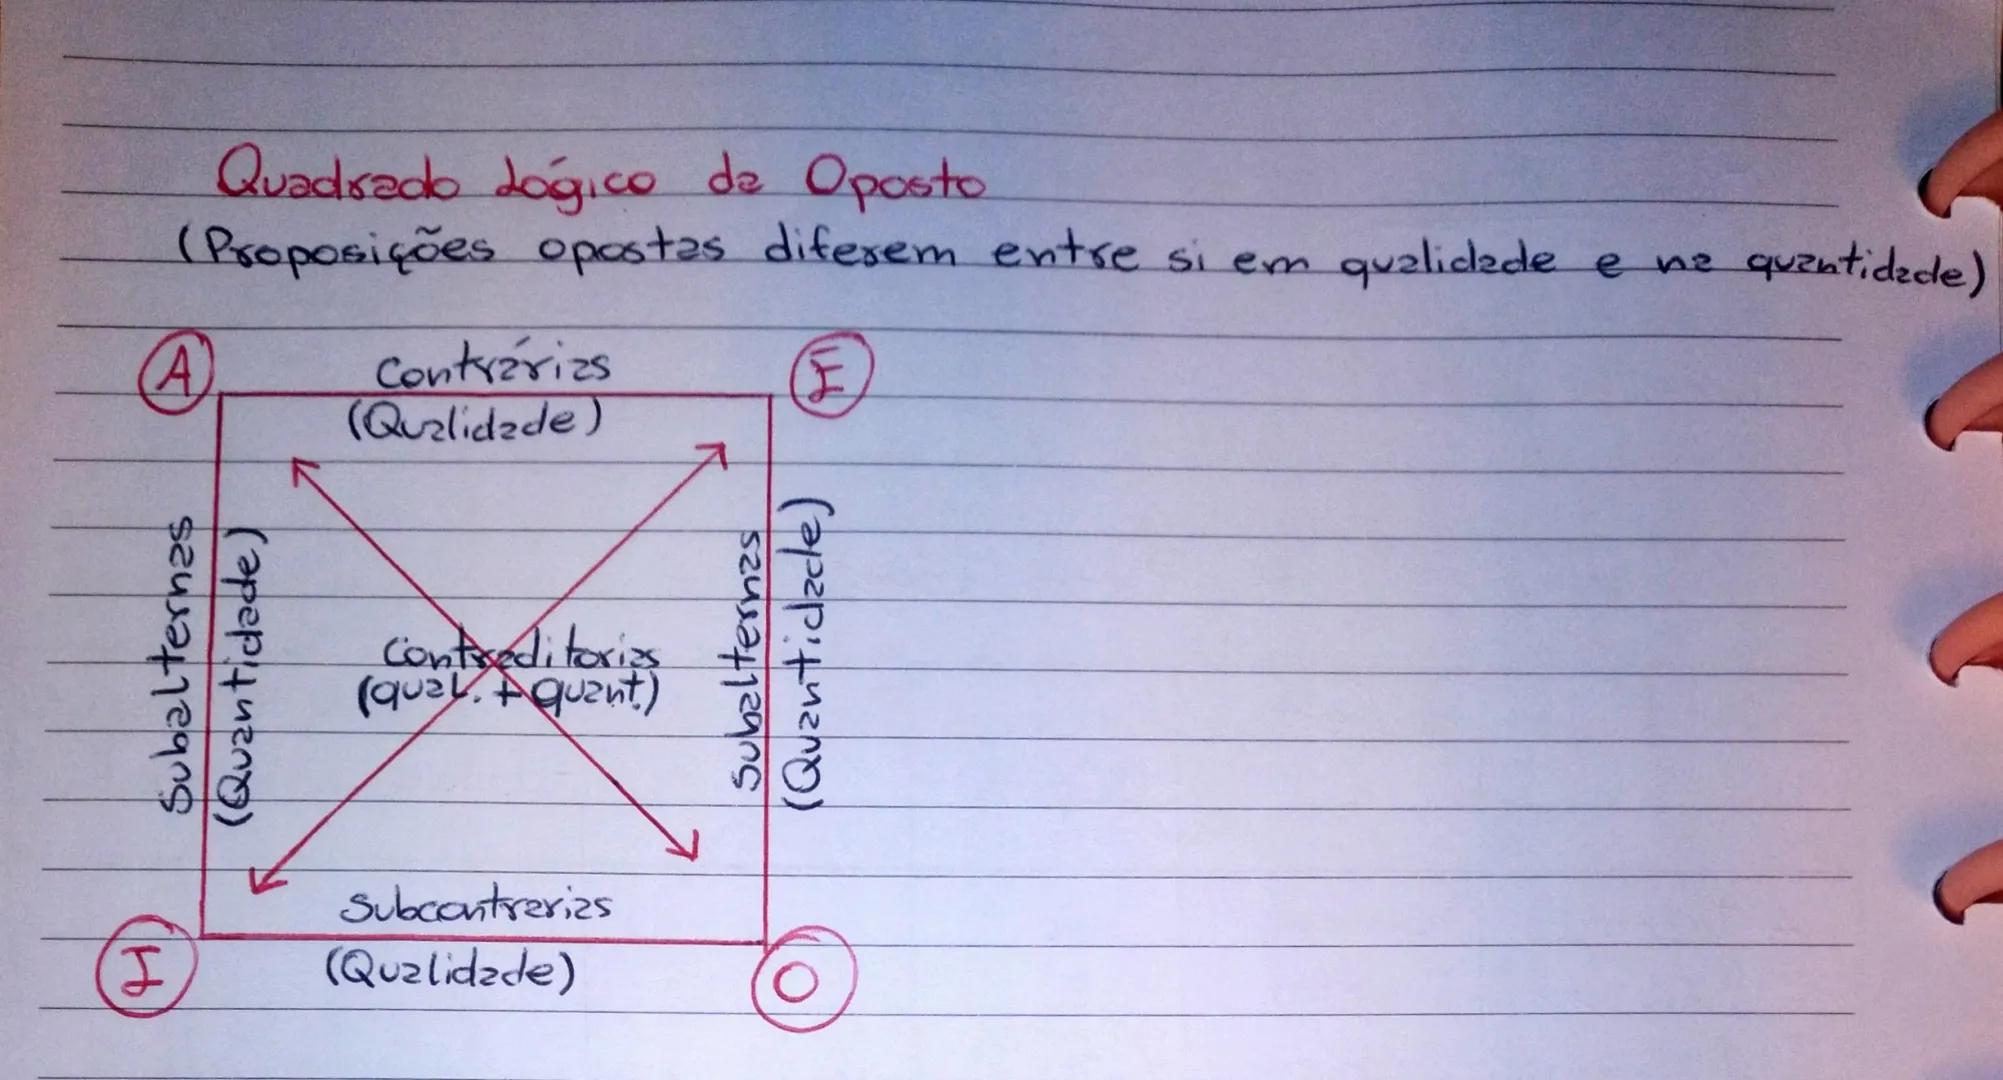 Quadrado Lógico da Oposto
(Proposições opostas diferem entre si em qualidade e na quantidade)
A
Contrárias
E
(Qualidade)
Subalternas
(Quantidade)
Contraditorias
(qual. + quant.)
Subalternas
(Quantidade)
Subcontrarias
I
(Qualidade)
O